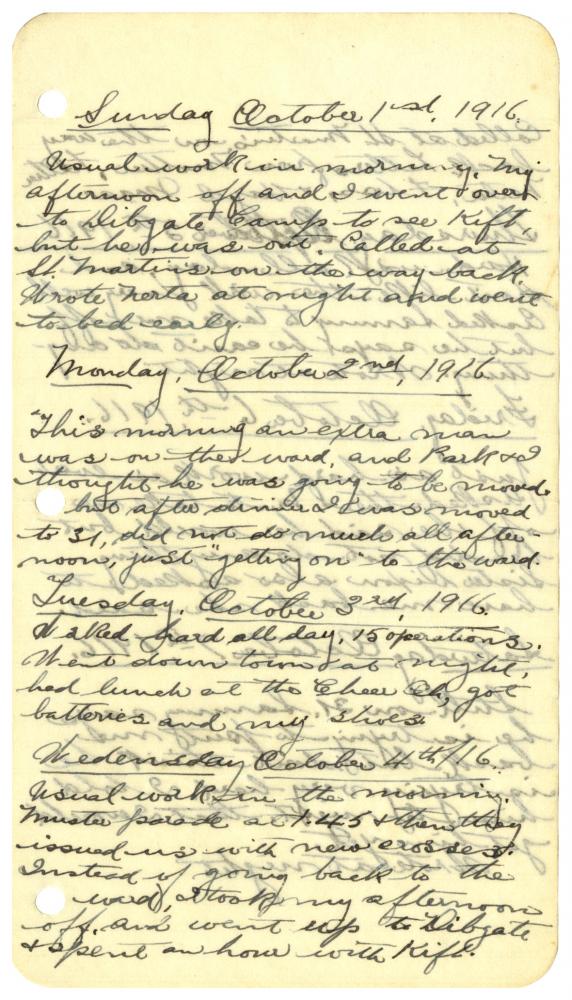 Sunday October 1st, 1916.
Usual work in morning. My
afternoon off and I went over
to Dibgate Camp to see Kift,
but he was out. Called at
St. Martins on the way back.
Wrote Nerta at night and went
to bed early.
Monday, October 2nd, 1916
This morning an extra man
was on the ward, and Park & I
thought he was going to be moved
but after dinner I was moved
to 31, did not do much all after-
noon, just "getting on" to the ward.
Tuesday, October 3rd, 1916.
Worked hard all day, 15 operations.
Went down town at night,
had lunch at the Cheer Oh, got
batteries and my shoes
Wedensday October 4th/16.
Usual work in the morning.
Muster parade at 1.45 & then they
issued us with new crosses.
Instead of going back to the
ward, I took my afternoon
off, and went up to Dibgate
& spent an hour with Kift.